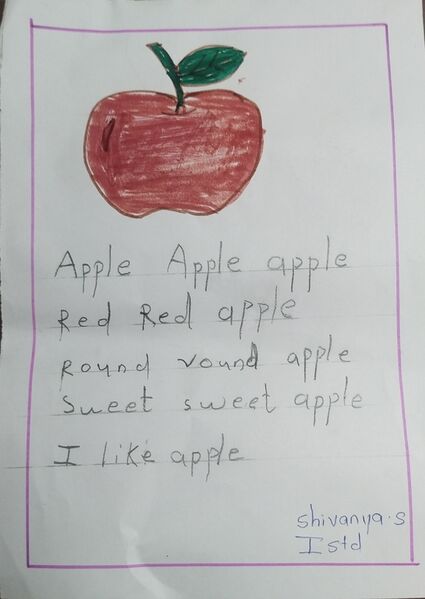 Apple Apple apple
Red Red apple
Round round apple
Sweet sweet apple
I like apple
shivanya.s
I std